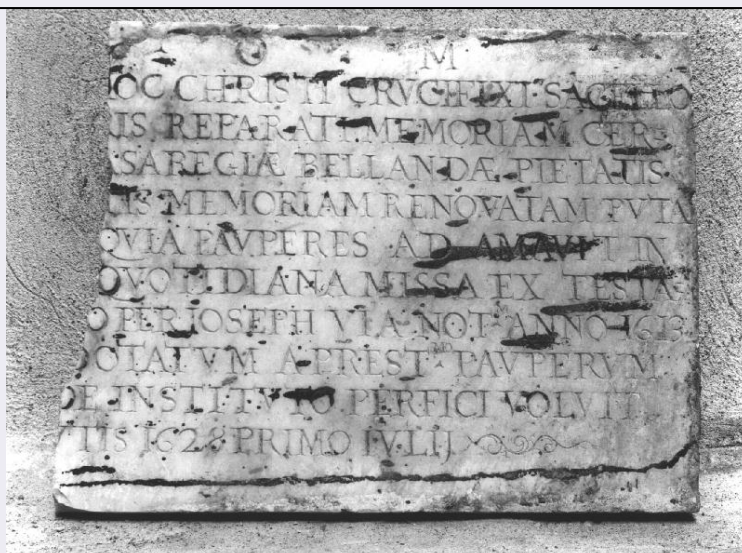 O M
OC CHRISTI CRVCIFIXI SACELLO
IS REPARATI MEMORIAM CER
ASA REGIÆ BELLANDÆ PIETATIS
IS MEMORIAM RENOVATAM PVTA
QVIA PAVPERES AD AMAVIT IN
QVOTIDIANA MISSA EX TESTA
O PER IOSEPH VIA NOT ANNO 1613
OTATVM A PREST PAVPERVM
DE INSTITVTO PERFICI VOLVIT
TIS 1628 PRIMO IVLIJ